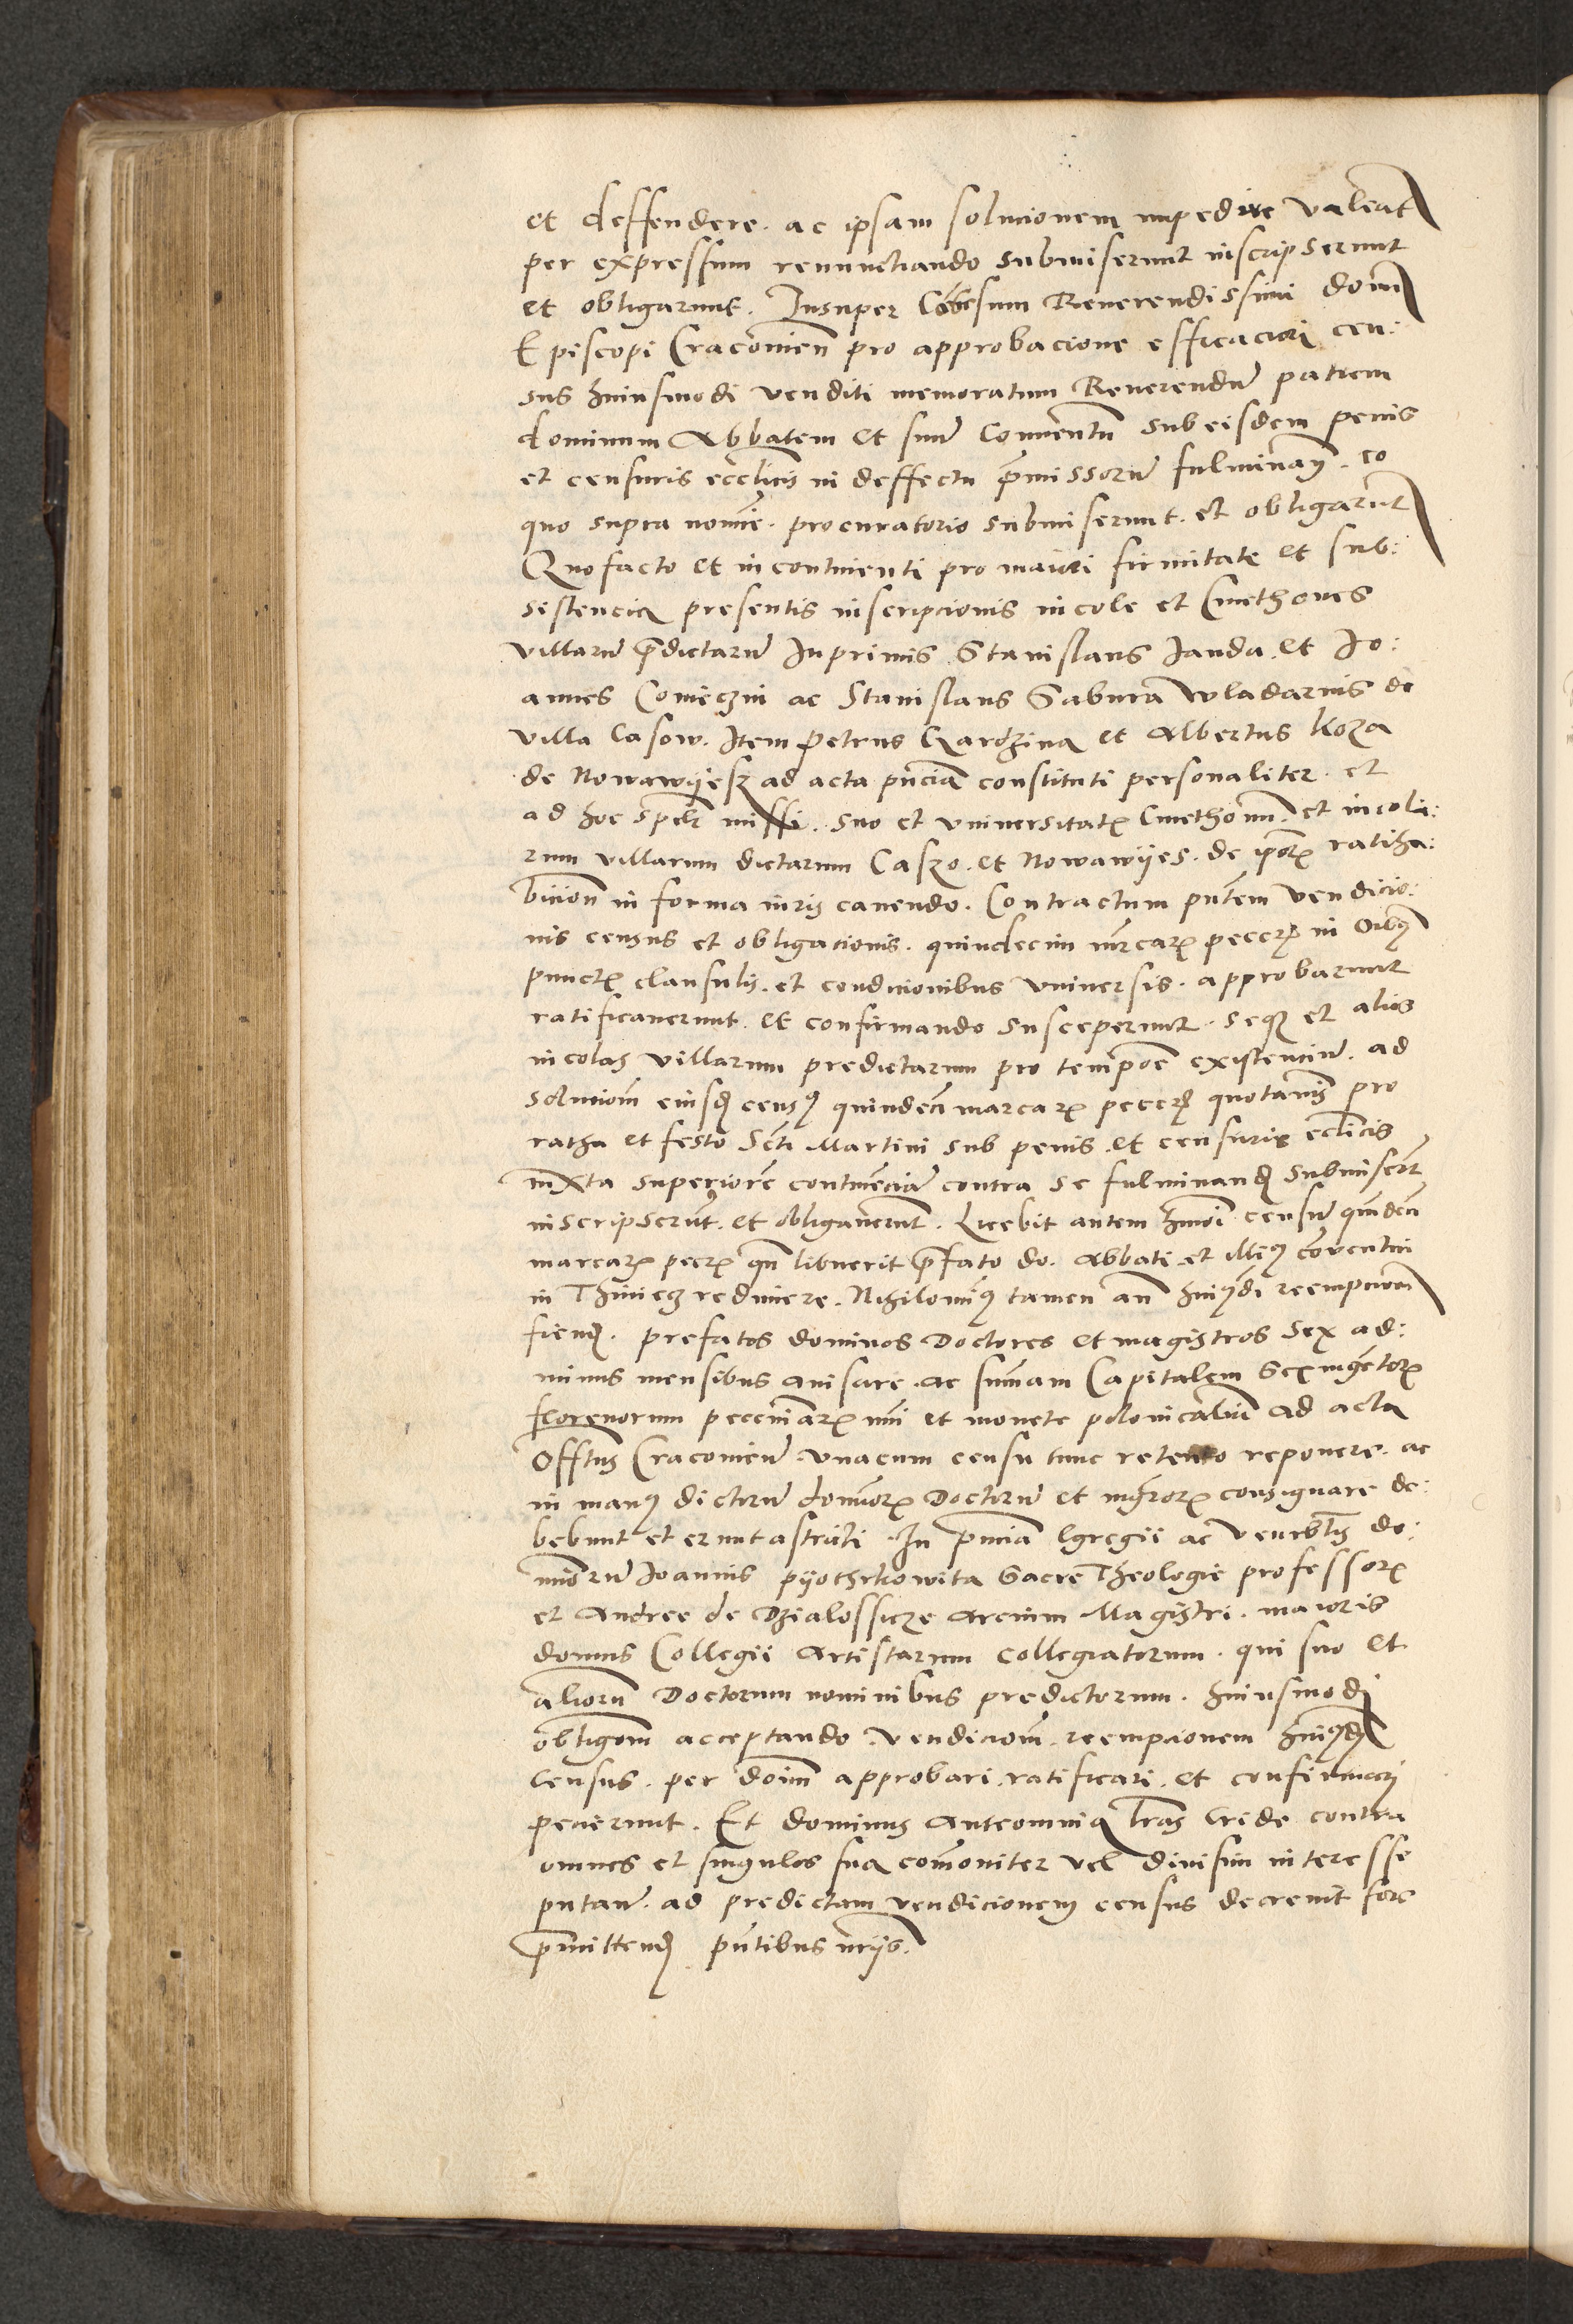 et deffendere. ac ipsam solucionem impedire valeat
per expressum renunctiando submiserunt inscripserunt
et obligarunt. Insuper Co͞sesum Reverendissimi domi͞
Episcopi Cracovien͞ pro approbacione efficaciori cen:
sus huiusmodi venditi memoratum Reverendu͞ patrem
dominum Abbatem et suu͞ Conventu͞ sub eisdem penis
et censuris eccl͞icis in deffectu p͞missoru͞ fulminan͞. eo
quo supra nom͞ie. procuratorio submiserunt. et obligaru͞t
Quo facto et in continenti pro maiori firmitate et sub:
sistencia presentis inscripcionis incole et Cmethones
villaru͞ p͞dictaru͞ Inprimis Stanislaus Janda. et Jo:
annes Conieczni ac Stanislaus Gabura wladarius de
villa Casow. Item Petrus Gardzina et Albertus Koza
de Nowawyesz ad acta pn͞cia constituti personaliter. et
ad hoc sp͞elr missi. suo et universitatꝭ Cmethonu͞. et incola:
rum villarum dictarum Caszo. et Nowawÿes. de ip͞orꝭ ratiha:
bicion͞ in forma iuris cavendo. Contractum pn͞tem vendicio:
nis census et obligacionis. quindecim m͞rcarꝭ pecc͞rꝭ in o͞ibꝰ
punctꝭ clausulis. et condicionibus universis. approbarunt
ratificaverunt. et confirmando susceperunt. seqꝫ et alios
incolas villarum predictarum pro temp͞oe existenciu͞. ad
soluciom͞ eiusdꝭ censꝰ quindeci͞ marcarꝭ peccrꝭ quotan͞is pro
ratha et festo S͞cti Martini sub penis. et censuris ecl͞icis
iuxta superiore͞ contine͞cia͞ contra se fulminandꝭ submiser͞t
inscripseru͞t. et obligaveru͞t. Licebit autem h͞moi censu͞ qui͞deci͞
marcarꝭ peccrꝭ qn͞ libuerit p͞fato do. Abbati et illiꝰ co͞ventui
in Thiniecz redimere. Nihilomi͞ꝰ tamen an͞ huiꝰdi reempciom͞
fiendꝭ. prefatos dominos Doctores et magistros Sex ad:
minus mensibus avisare. ac sum͞am Capitalem Sexinge͞torꝭ
florenorum pecc͞niarꝭ nu͞i et monete polonicaliu͞ ad acta
Off͞tus Cracovien͞. unacum censu tunc retento reponere. ac
in manꝰ dictoru͞ domi͞orꝭ Doctoru͞ et mg͞rorꝭ consignare de:
bebunt et erunt astricti. In pn͞cia Egregii ac ven͞rbl͞is do:
mi͞oru͞ Joannis pÿothrkowita Sacre Theologie professorꝭ
et Andree de Dzialossicze arcium Magistri. maioris
domus Collegii Artistarum collegiatorum. qui suo et
alioru͞ Doctorum nominibus predictorum. huiusmodi
oblig͞om͞ acceptando. vendiciom͞. reempcionem huiꝰdi
census. per do͞im͞ approbari. ratificari. et confirmari
pecierunt. Et dominus Anteomnia l͞ras Crede contra
omnes et singulos sua com͞oniter vel divisim interesse
putan͞. ad predictam vendicionem census decrevit fore
p͞mittendꝭ. pn͞tibus n͞rijs.